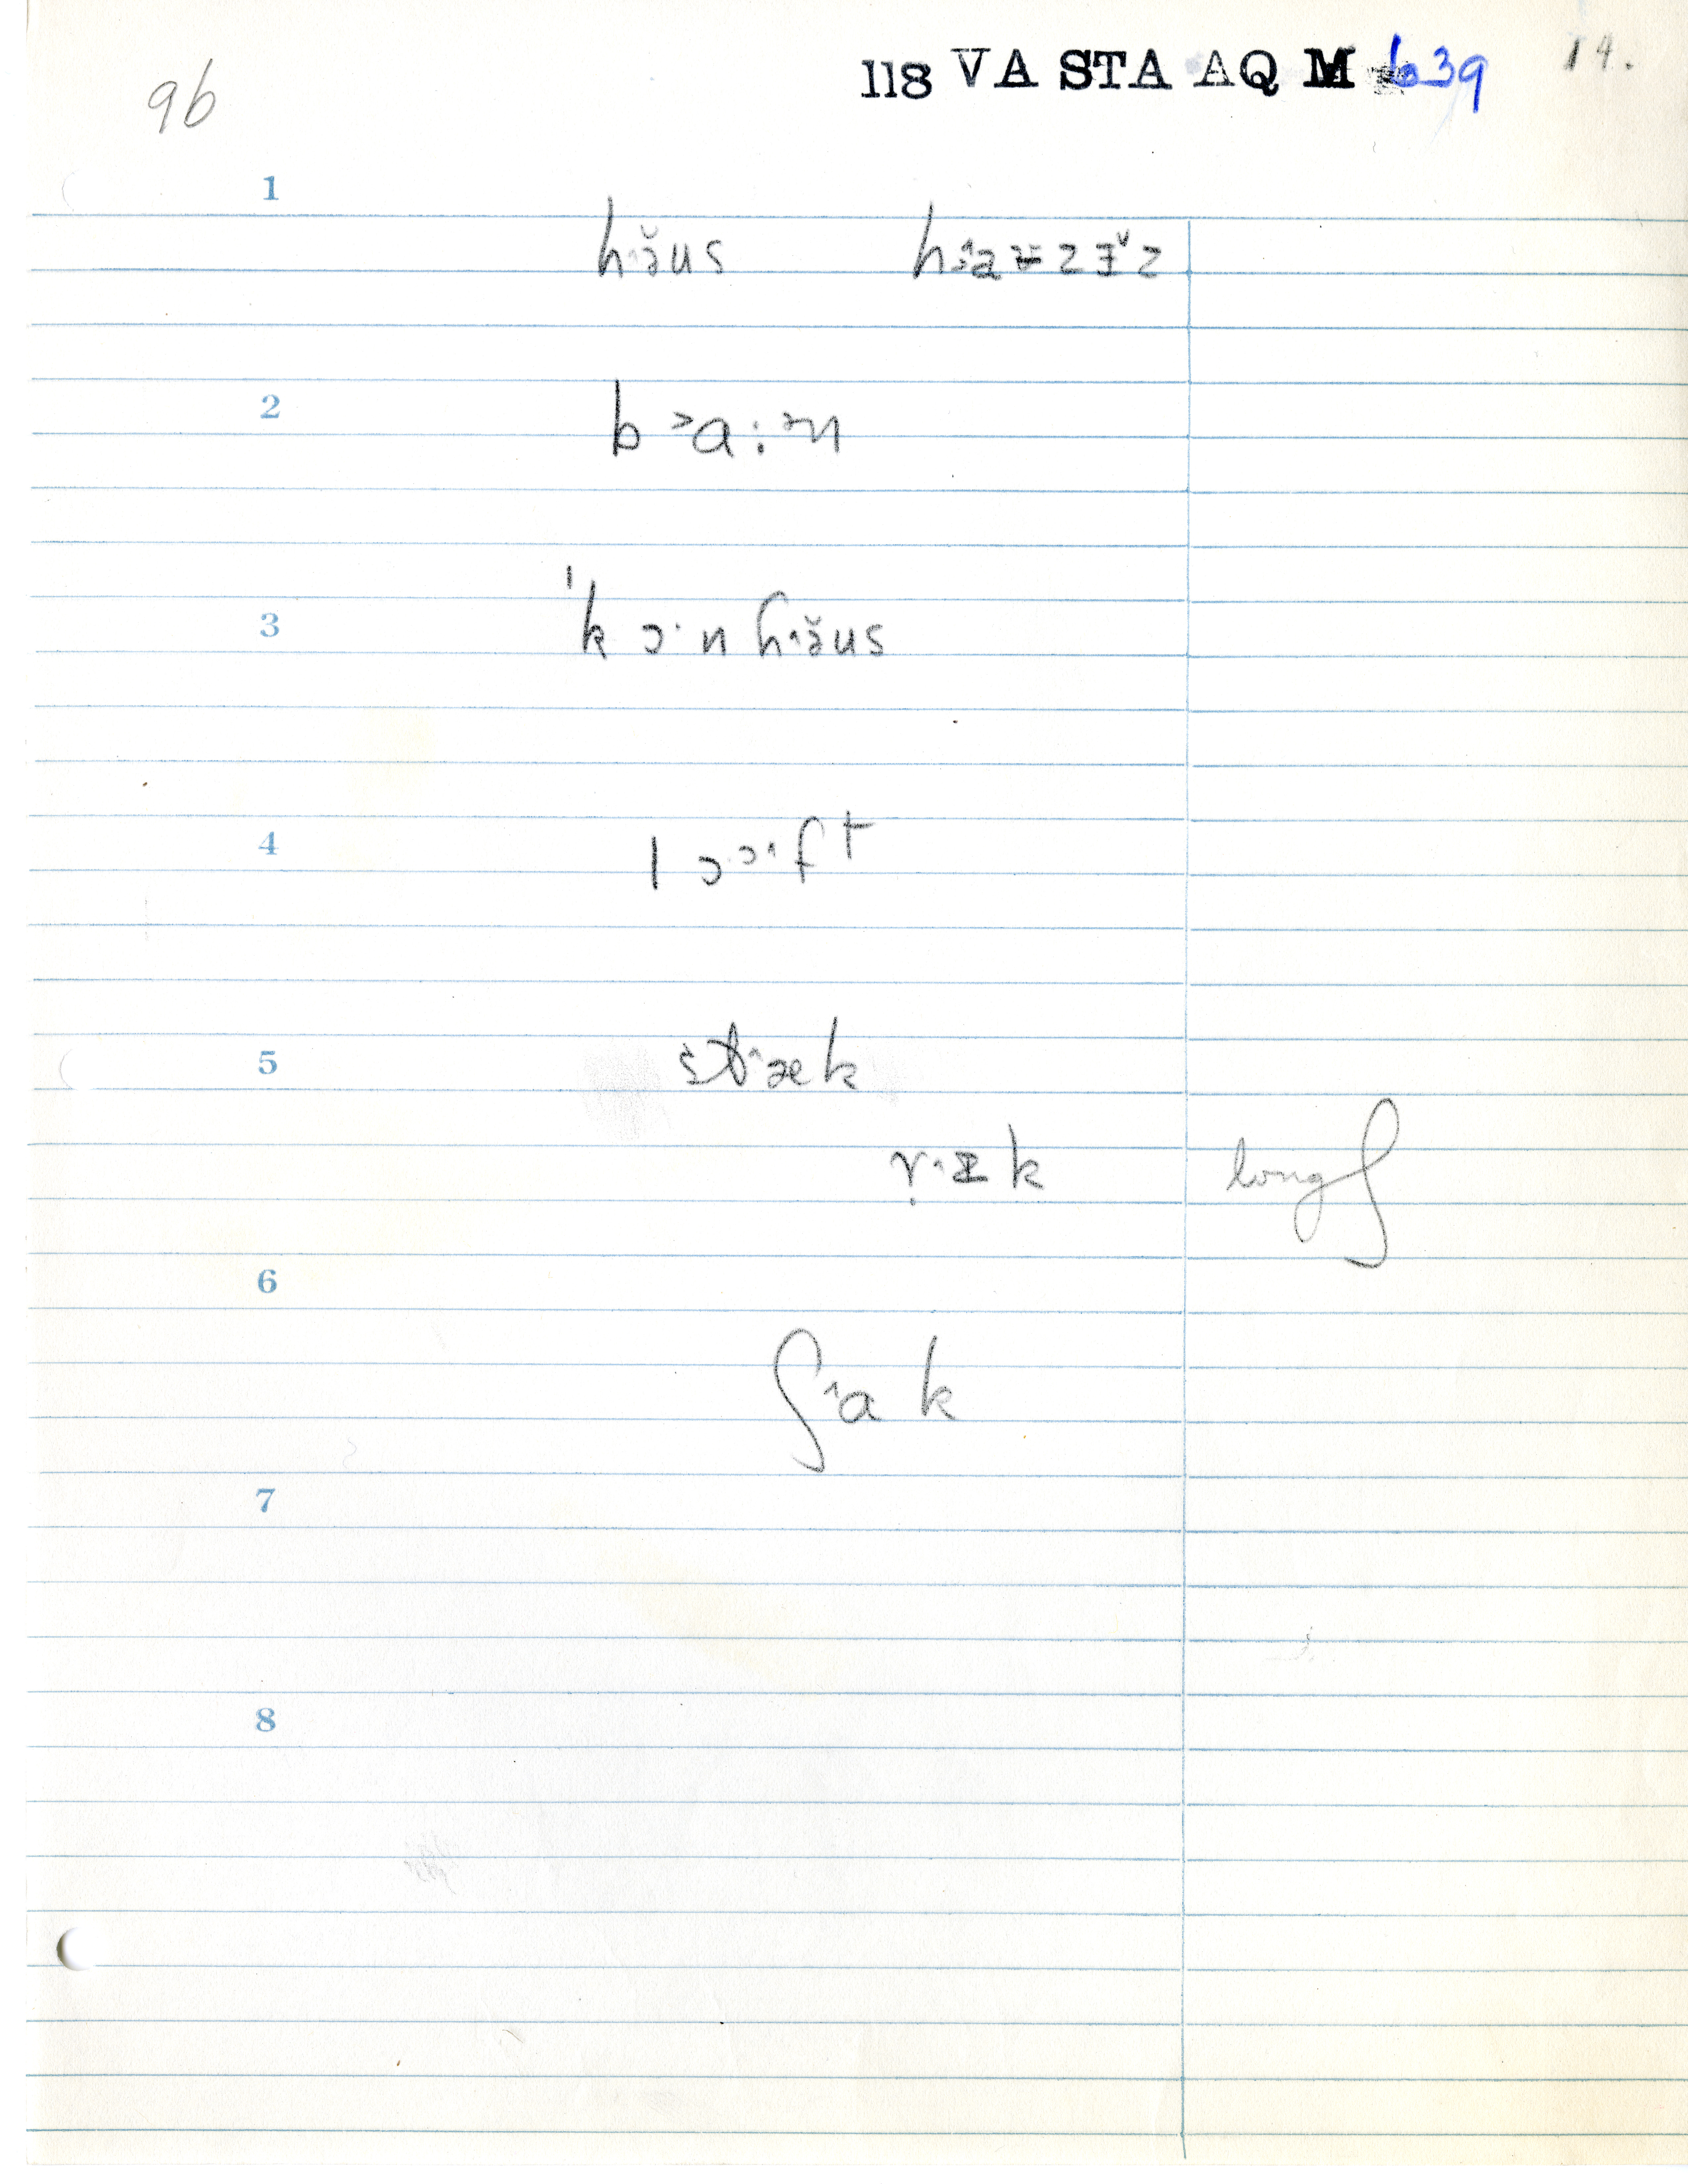 96 118 VA STA AQ M 639 14.
1
hɜ̆us
2
b ˃a:ᵊn
3
ˈk ɔ· n hɜ̆us
4
l ɔᵓ·ft
5
st˄æk
r̩·ɪ k long ʃ
6
ʃ˄a k
7
8